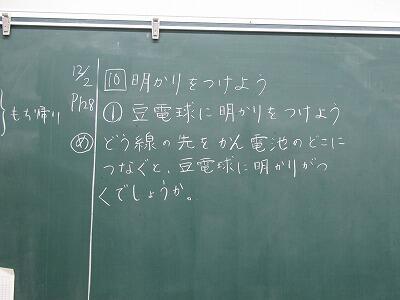 もち帰り
12/2
P128
10 明かりをつけよう
① 豆電球に明かりをつけよう
め どう線の先をかん電池のどこに
つなぐと、豆電球に明かりがつ
くでしょうか。